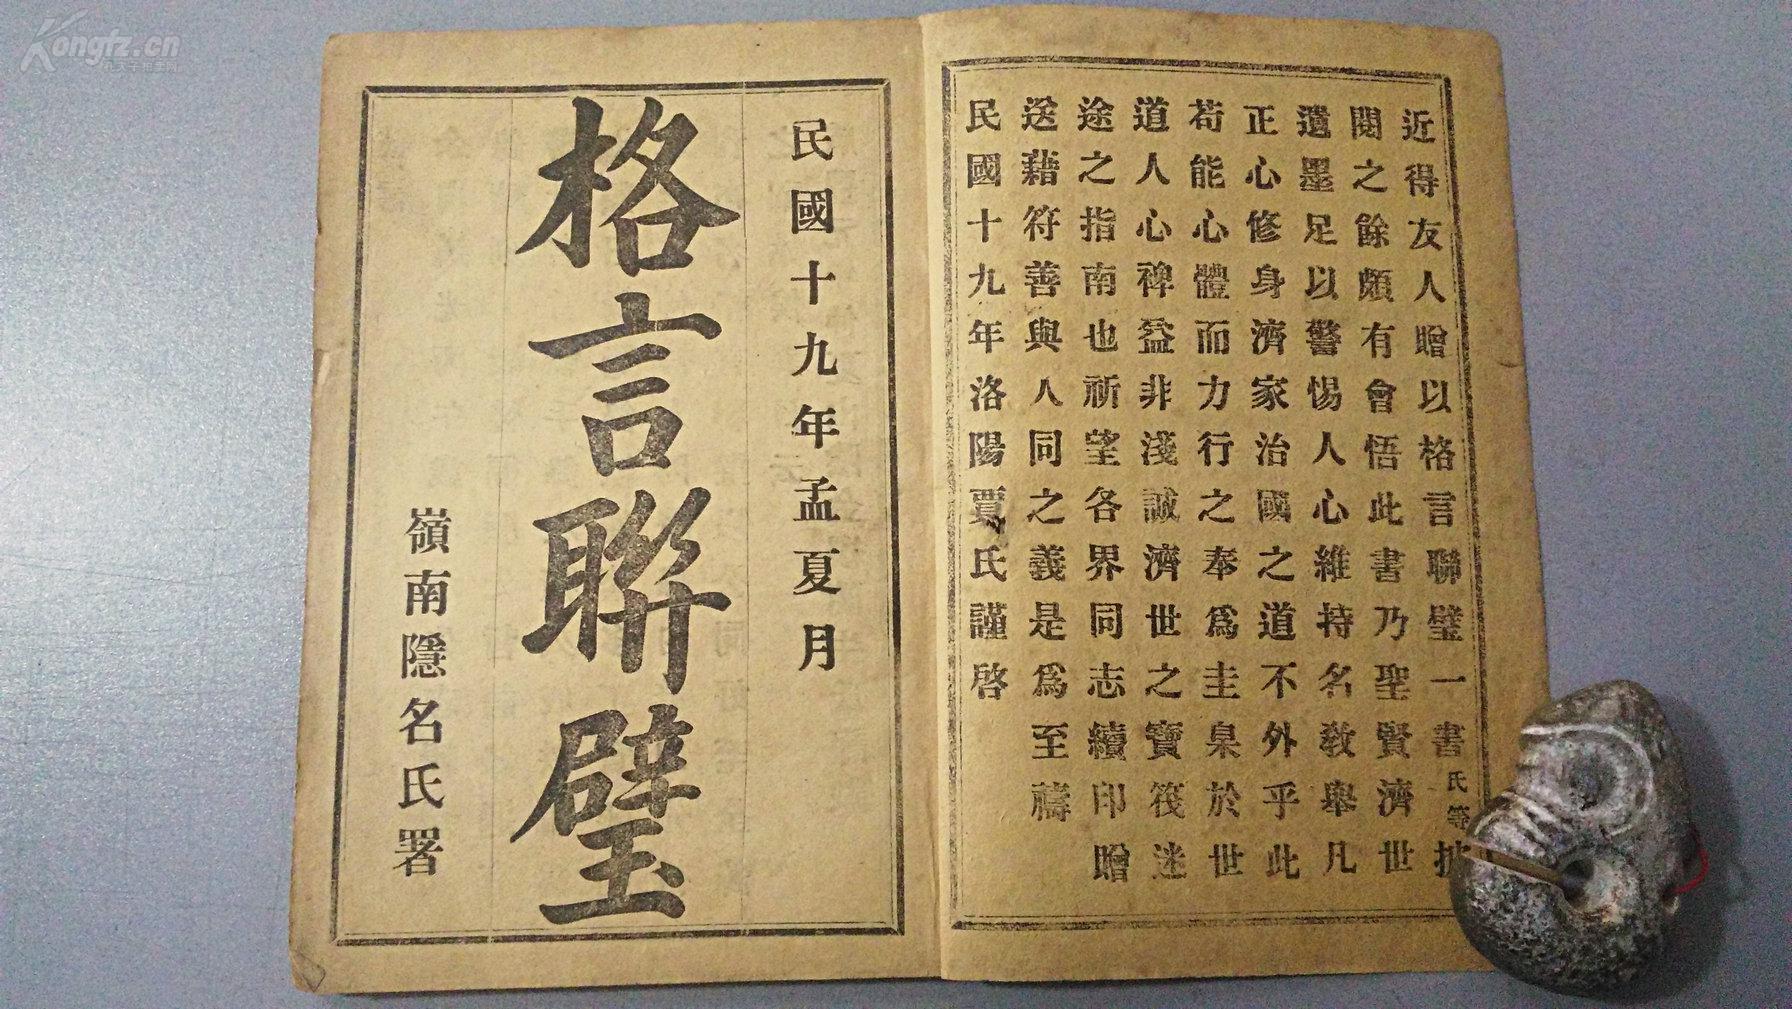 近得友人贈以格言聯璧一書氏等披
閱之餘頗有會悟此書乃聖賢濟世
遺墨足以警惕人心維持名教舉凡
正心修身濟家治國之道不外乎此
苟能心體而力行之奉爲圭臬於世
道人心裨益非淺誠濟世之寶筏迷
途之指南也祈望各界同志續印贈
送藉符善與人同之義是爲至禱
民國十九年洛陽賈氏謹啓
民國十九年孟夏月
格言聯璧
嶺南隱名氏署
Kongfz.cn